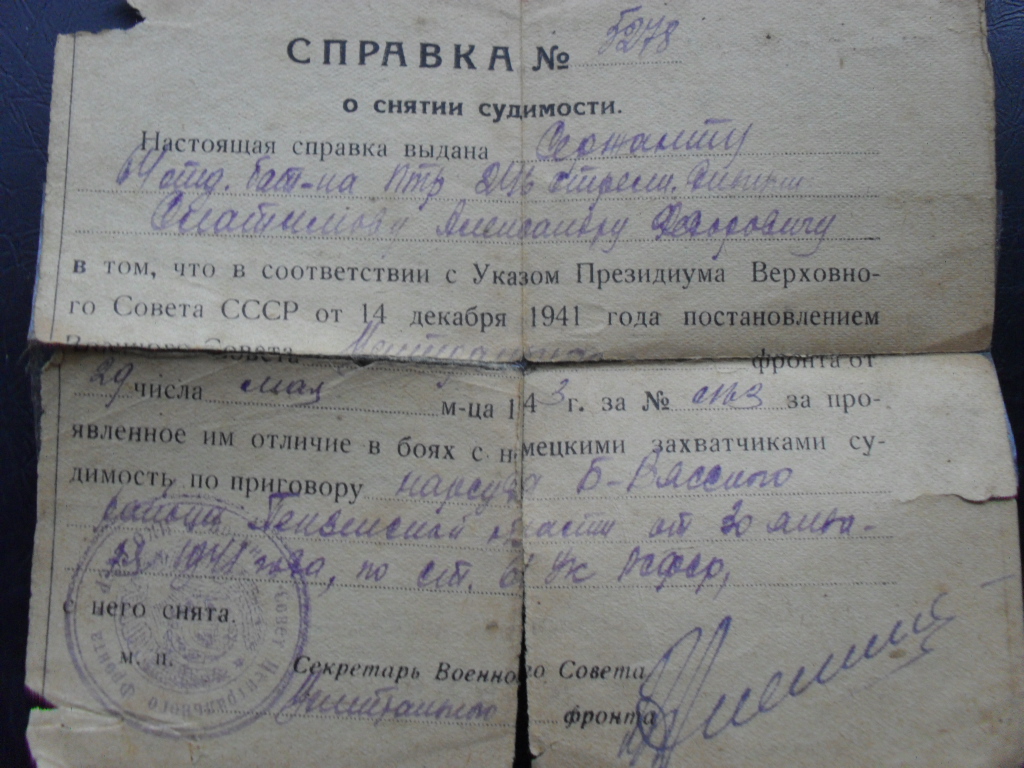 СПРАВКА № 5278
о снятии судимости.
Настоящая справка выдана Сержанту
отд. бат-на ПТР стрелк. дивизии
Александру Федоровичу
в том, что в соответствии с Указом Президиума Верховно-
го Совета СССР от 14 декабря 1941 года постановлением
Военного Совета Центрального фронта от
29 числа мая м-ца 143 г. за № за про-
явленное им отличие в боях с немецкими захватчиками су-
димость по приговору нарсуда Б-Вясского
района Пензенской области от 30 янва-
ря 1941 года, по ст. 61 УК РСФСР,
с него снята.
м. п. Секретарь Военного Совета
Центрального фронта
Совет Центрального Фронта